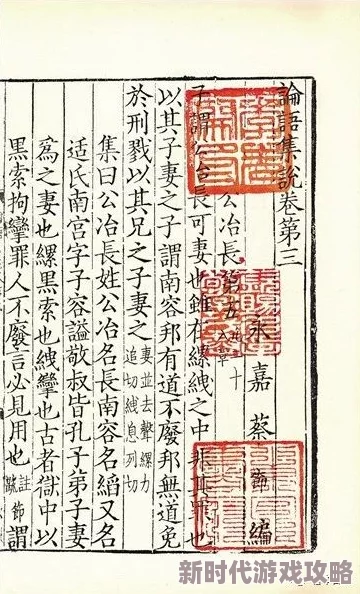 論語集說卷第三
公冶長第五 永嘉蔡節編
子謂公冶長可妻也雖在縲絏之中非其罪也
以其子妻之子謂南容邦有道不廢邦無道免
於刑戮以其兄之子妻之妻並去聲縲力追切絏息列切
集曰公冶長姓公冶名長南容名縚又名
适氏南宮字子容謚敬叔皆孔子弟子妻
爲之妻也縲黑索也絏攣也古者獄中以
黑索拘攣罪人不廢言必見用也註疏節謂
新时代游戏攻略